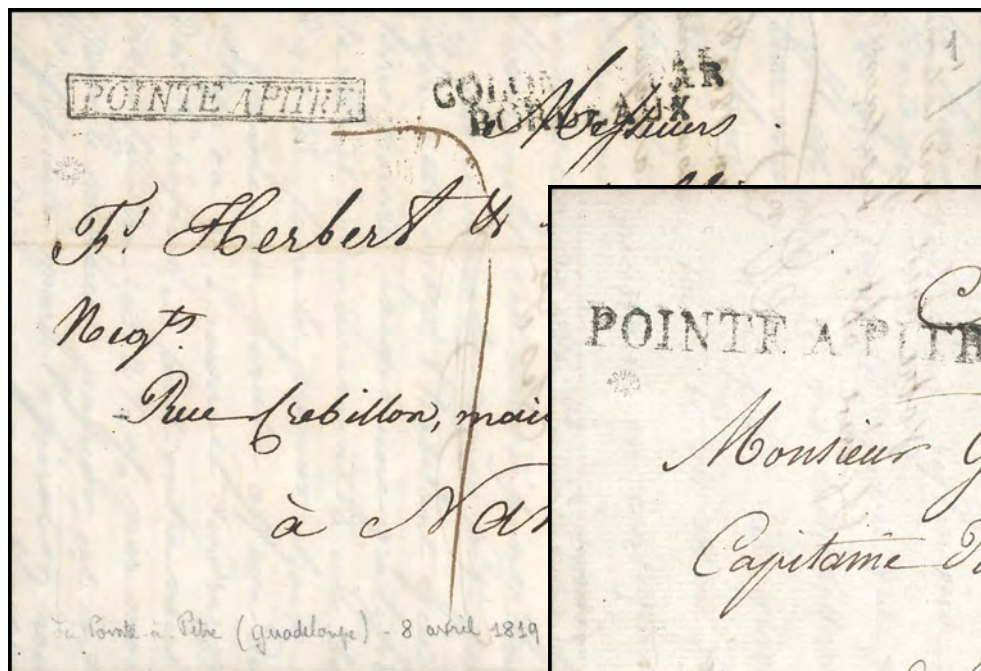 1
POINTE A PITRE
COLON PAR
BORDEAUX
Messieurs
Fs. Herbert &
Negts.
Rue Crebillon, mais
à Nan
La Pointe à Pitre (Guadeloupe) - 8 avril 1819
POINTE A PITR
Monsieur G
Capitaine